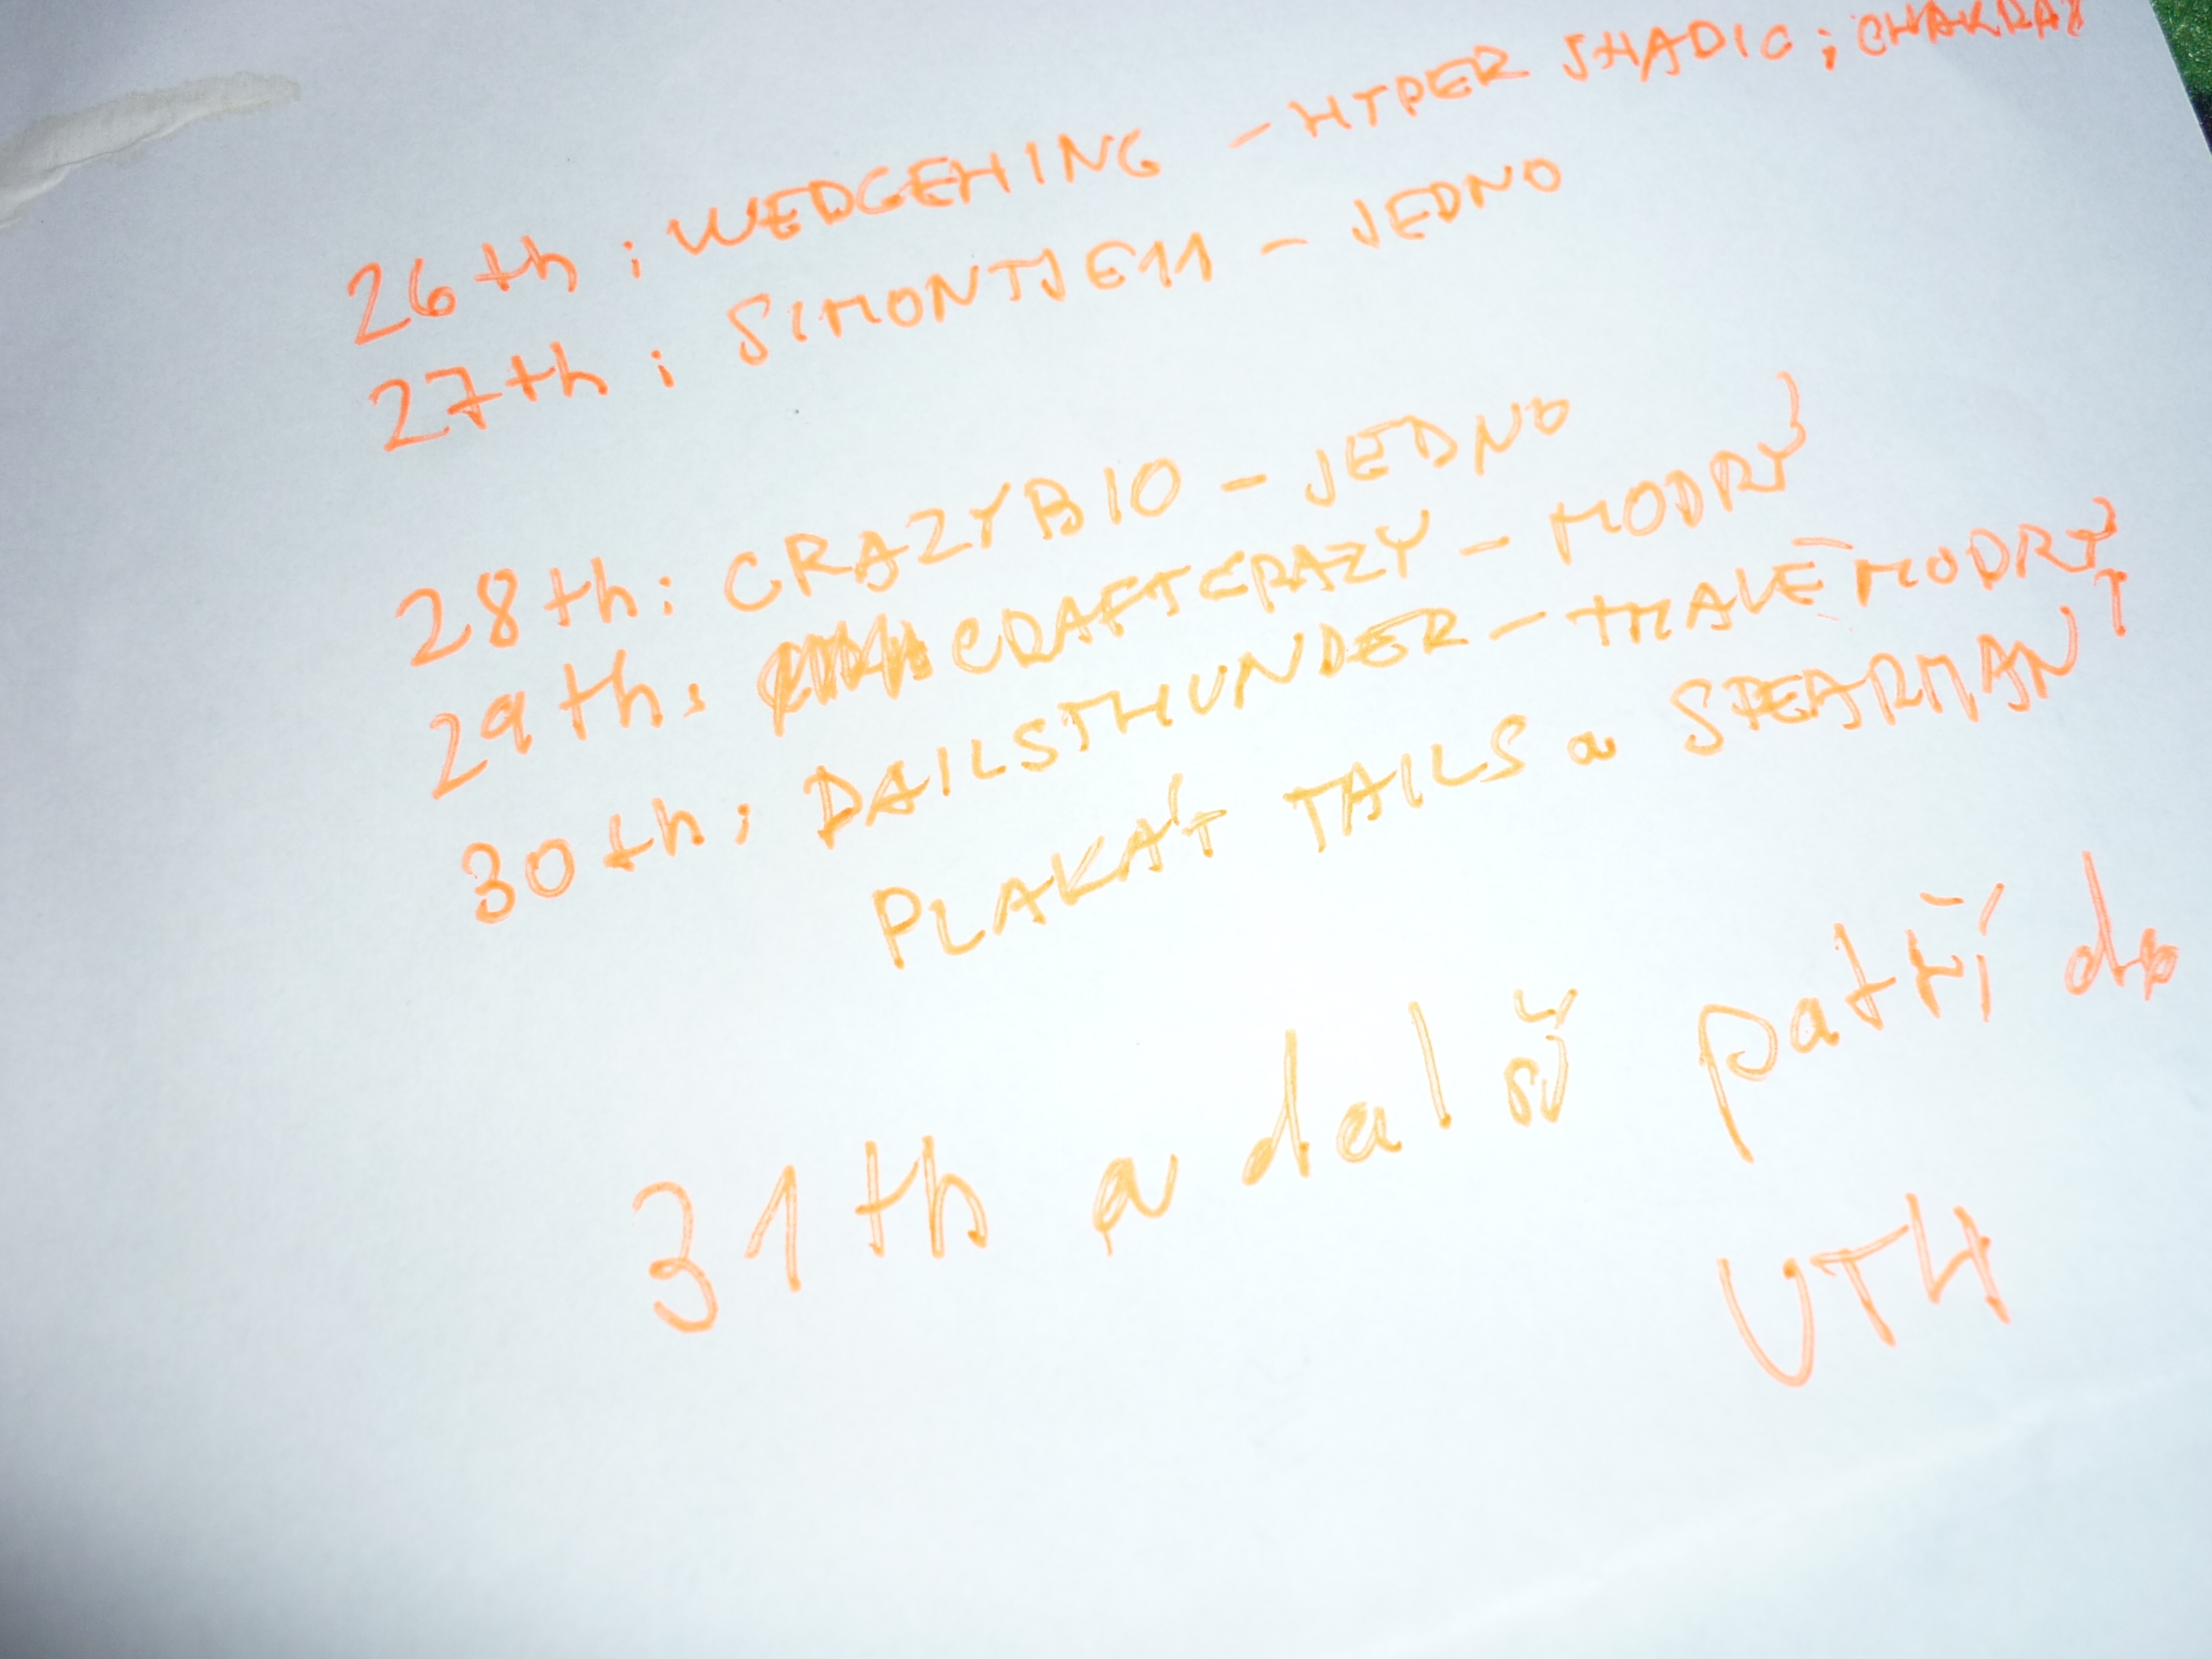 26th: WEDGEHING - HYPER SHADIC; CHAKRAX
27th: SIMONTJE11 - JEDNO
28th: CRAZYBIO - JEDNO
29th: CRAFTCRAZY - MODRY}
30th: DAILSTHUNDER - TMAVĚ MODRY}
PLAKÁT TAILS a SPEARMAN ↑
31th a další patří do
UTH